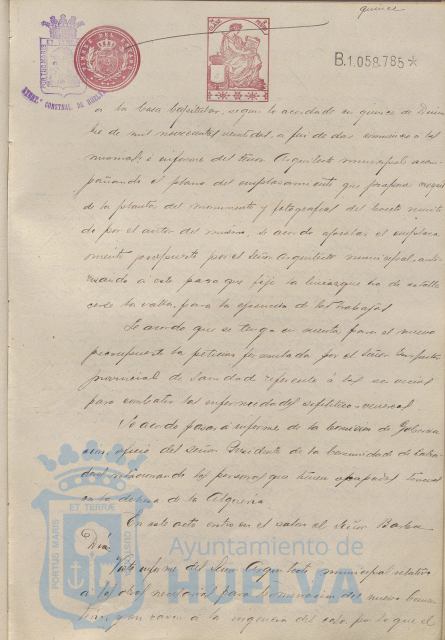 quince
B.1.058.785*
PORTUS MARIS
AYUNT. CONSTNAL. DE HUELVA
TIMBRE DEL ESTADO
a la Casa Capitular, segun lo acordado en quince de Diciem
bre de mil novecientos veintidos, a fin de dar comienzo a los
mismos; é informe del Señor Arquitecto municipal acom-
pañando el plano del emplazamiento que propone
de la planta del monumento y fotografias del boceto remiti
do por el autor del mismo, se acordó aprobar el emplaza
miento propuesto por el Señor Arquitecto municipal, auto-
rizando á este para que fije la linea que ha de estable
cerse la valla para la ejecucion de los trabajos
Se acordó que se tenga en cuenta para el nuevo
presupuesto la peticion formulada por el Señor Inspector
provincial de Sanidad referente á
para combatir las enfermedades sifilitico-venereas
Se acordó pasar á informe de la Comision de Goberna
cion, oficio del Señor Presidente de la Comunidad de Labra
dores relacionando las personas que tienen ocupados terrenos
en la dehesa de la Alqueria
En este acto entró en el salon el Señor Barba
Diaz
Visto informe del Señor Arquitecto municipal relativo
a lo que el
ET TERRÆ
PORTUS MARIS
CUSTODIA
Ayuntamiento de
HUELVA